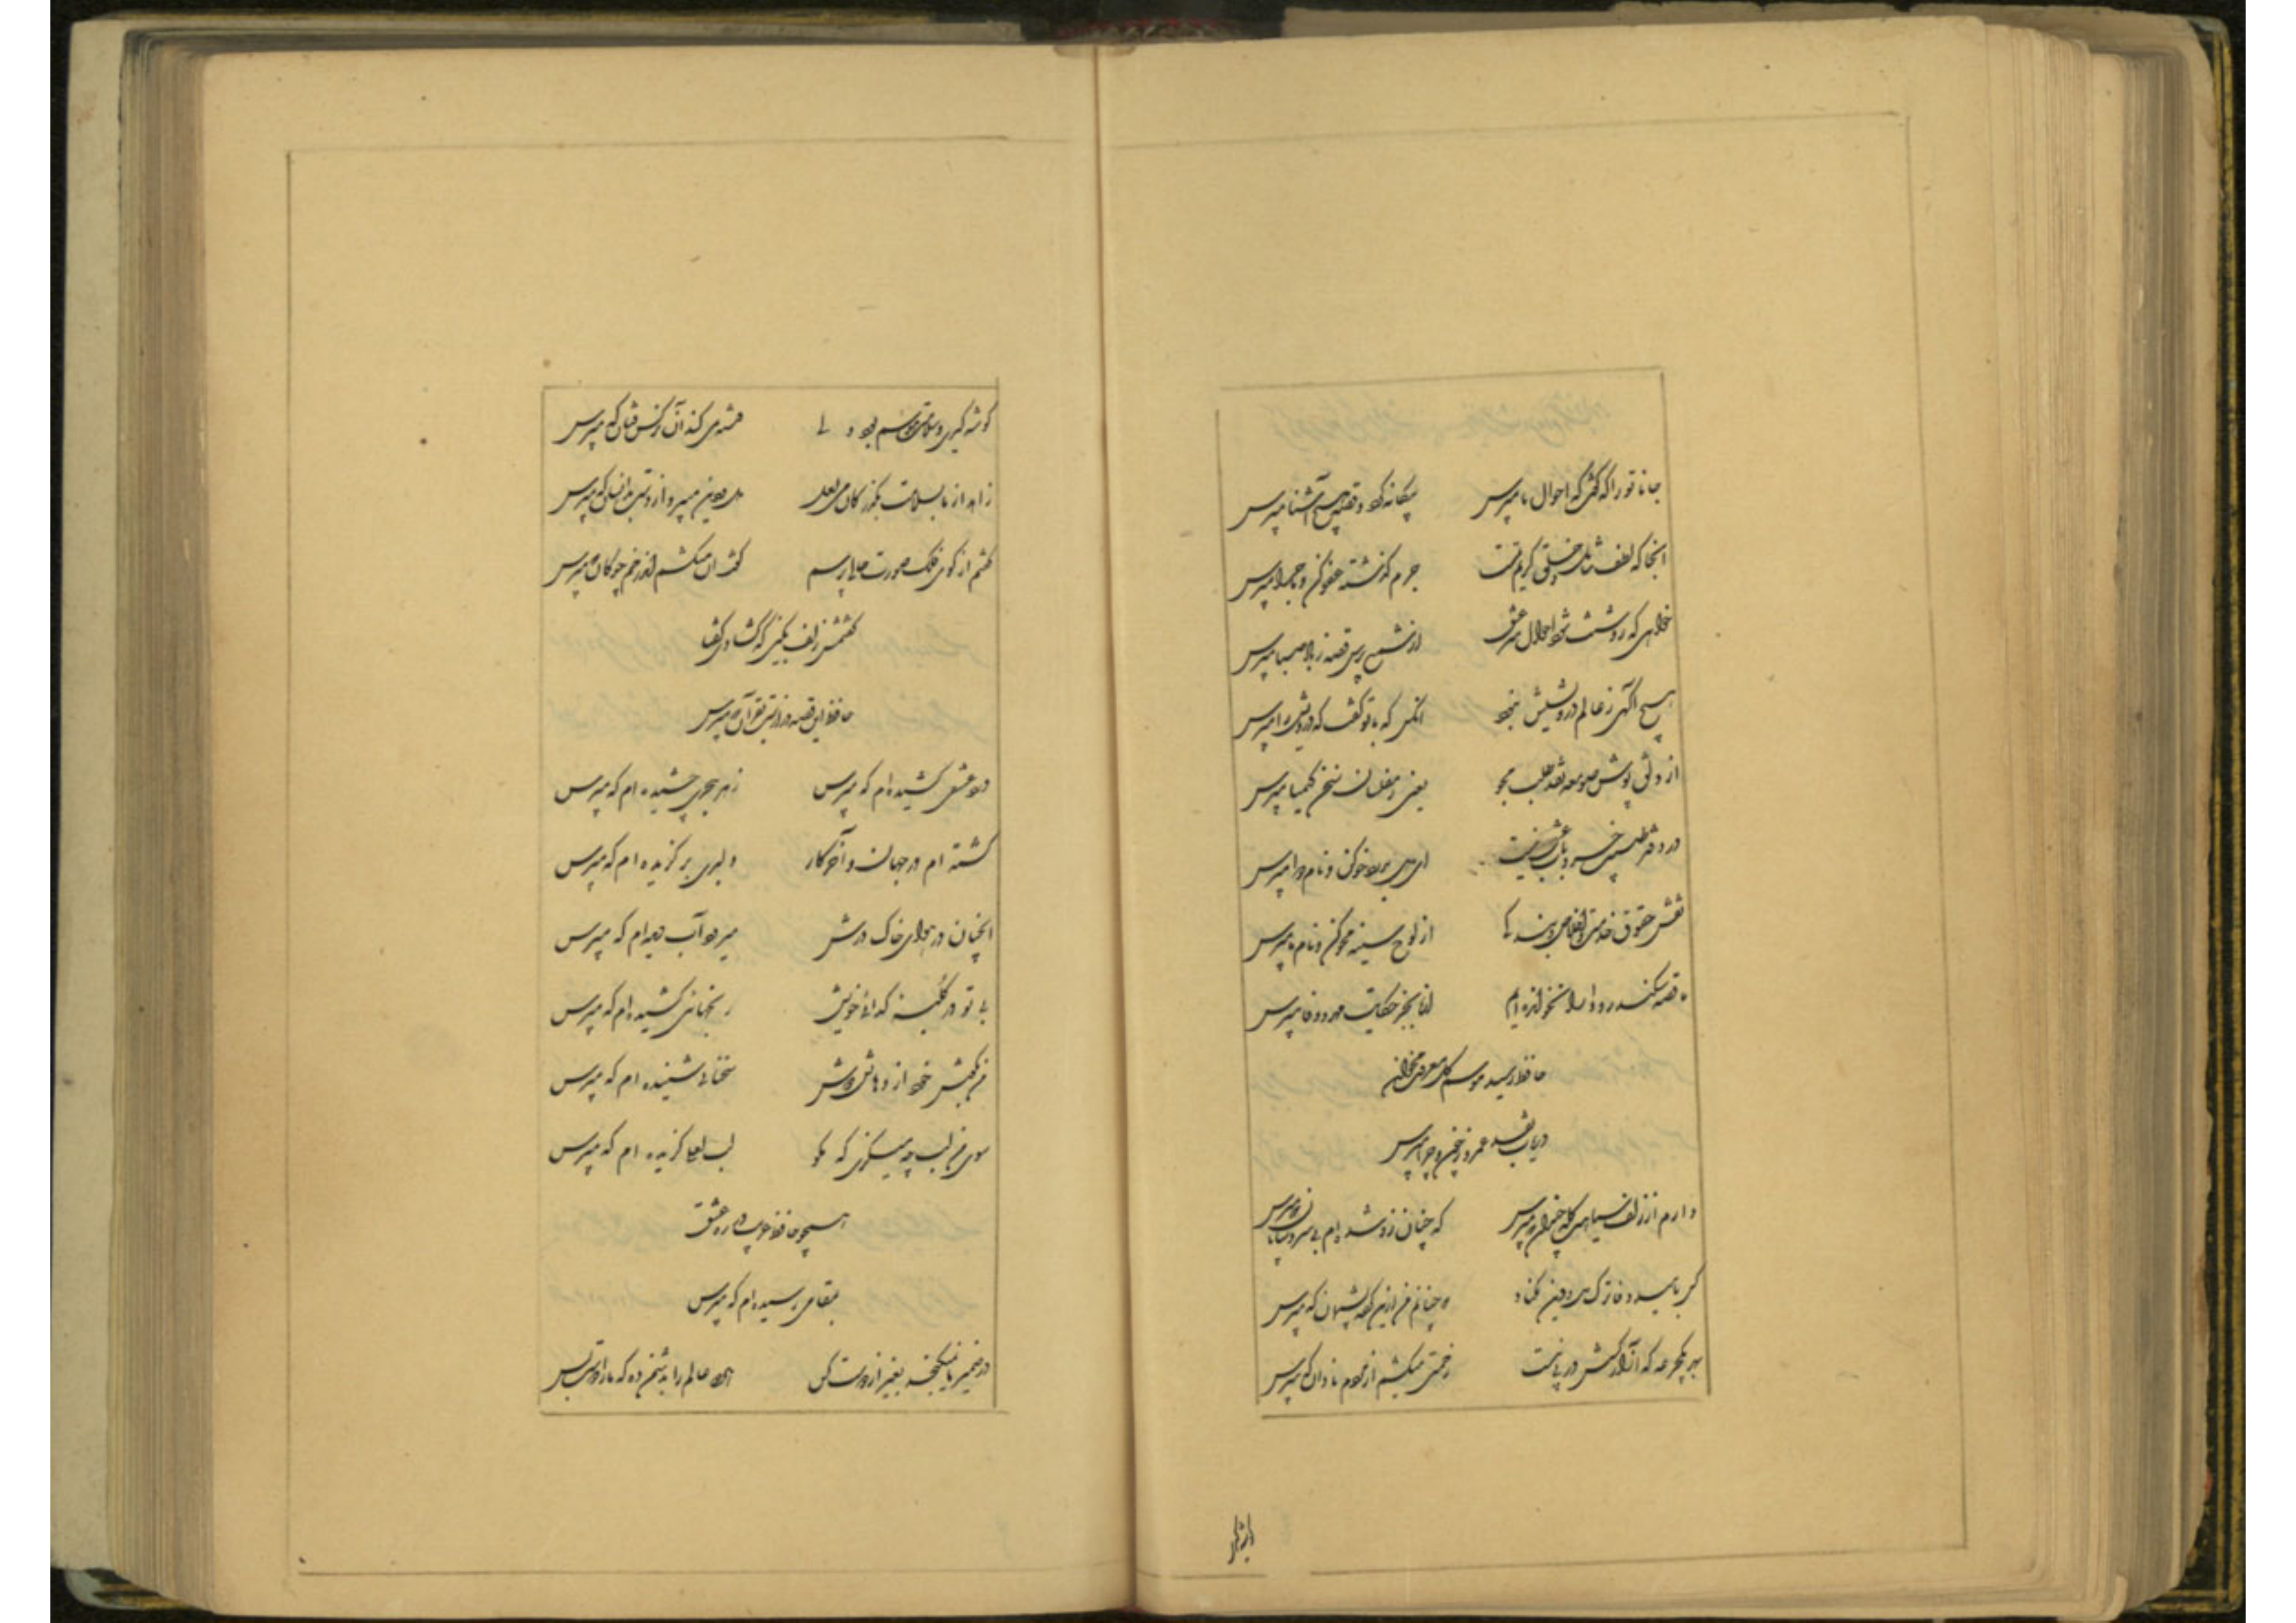 جانا تو را که گفت که احوال ما مپرس بیگانه گرد و قصه هیچ آشنا مپرس
آنجا که لطف شامل و خلق کریم تست جرم گذشته عفو کن و ماجرا مپرس
خواهی که روشنت شود احوال سر عشق از شمع پرس قصه ز باد صبا مپرس
هیچ آگهی ز عالم درویشیش نبود آنکس که با تو گفت که درویش را مپرس
از دلق پوش صومعه نقد طلب مجو یعنی ز مفلسان سخن کیمیا مپرس
در دفتر طبیب خرد باب عشق نیست ای دل بدرد خو کن و نام دوا مپرس
نقش حقوق خدمت و اخلاص بندگی از لوح سینه محو کن و نام ما مپرس
ما قصه سکندر و دارا نخوانده ایم از ما بجز حکایت مهر و وفا مپرس
حافظ رسید موسم گل معرفت مخوان
دریاب نقد عمر و ز چون و چرا مپرس
دارم از زلف سیاهش گله چندان که مپرس که چنان زو شده ام بی سر و سامان که مپرس
کس بامید وفا ترک دل و دین مکناد که چنانم من ازین کرده پشیمان که مپرس
بهر یکجرعه که آزار کسش در پی نیست زحمتی میکشم از مردم نادان که مپرس
گوشه گیری و سلامت هوسم بود ولی فتنه می کند آن نرگس فتان که مپرس
زاهد از ما بسلامت بگذر کاین می لعل دل و دین میبرد از دست بدانسان که مپرس
گفتم از گوی فلک صورت حالی پرسم گفت آن میکشم اندر خم چوگان که مپرس
گفتمش زلف بکین که گشادی گفتا
حافظ این قصه درازست بقرآن که مپرس
درد عشقی کشیده ام که مپرس زهر هجری چشیده ام که مپرس
گشته ام در جهان و آخر کار دلبری برگزیده ام که مپرس
آنچنان در هوای خاک درش میرود آب دیده ام که مپرس
بی تو در کلبه گدائی خویش رنجهائی کشیده ام که مپرس
من بگوش خود از دهانش دوش سخنانی شنیده ام که مپرس
سوی من لب چه میگزی که مگو لب لعلی گزیده ام که مپرس
همچو حافظ غریب در ره عشق
بمقامی رسیده ام که مپرس
در ضمیر ما نمیگنجد بغیر از دوست کس هر دو عالم را بدشمن ده که ما را دوست بس